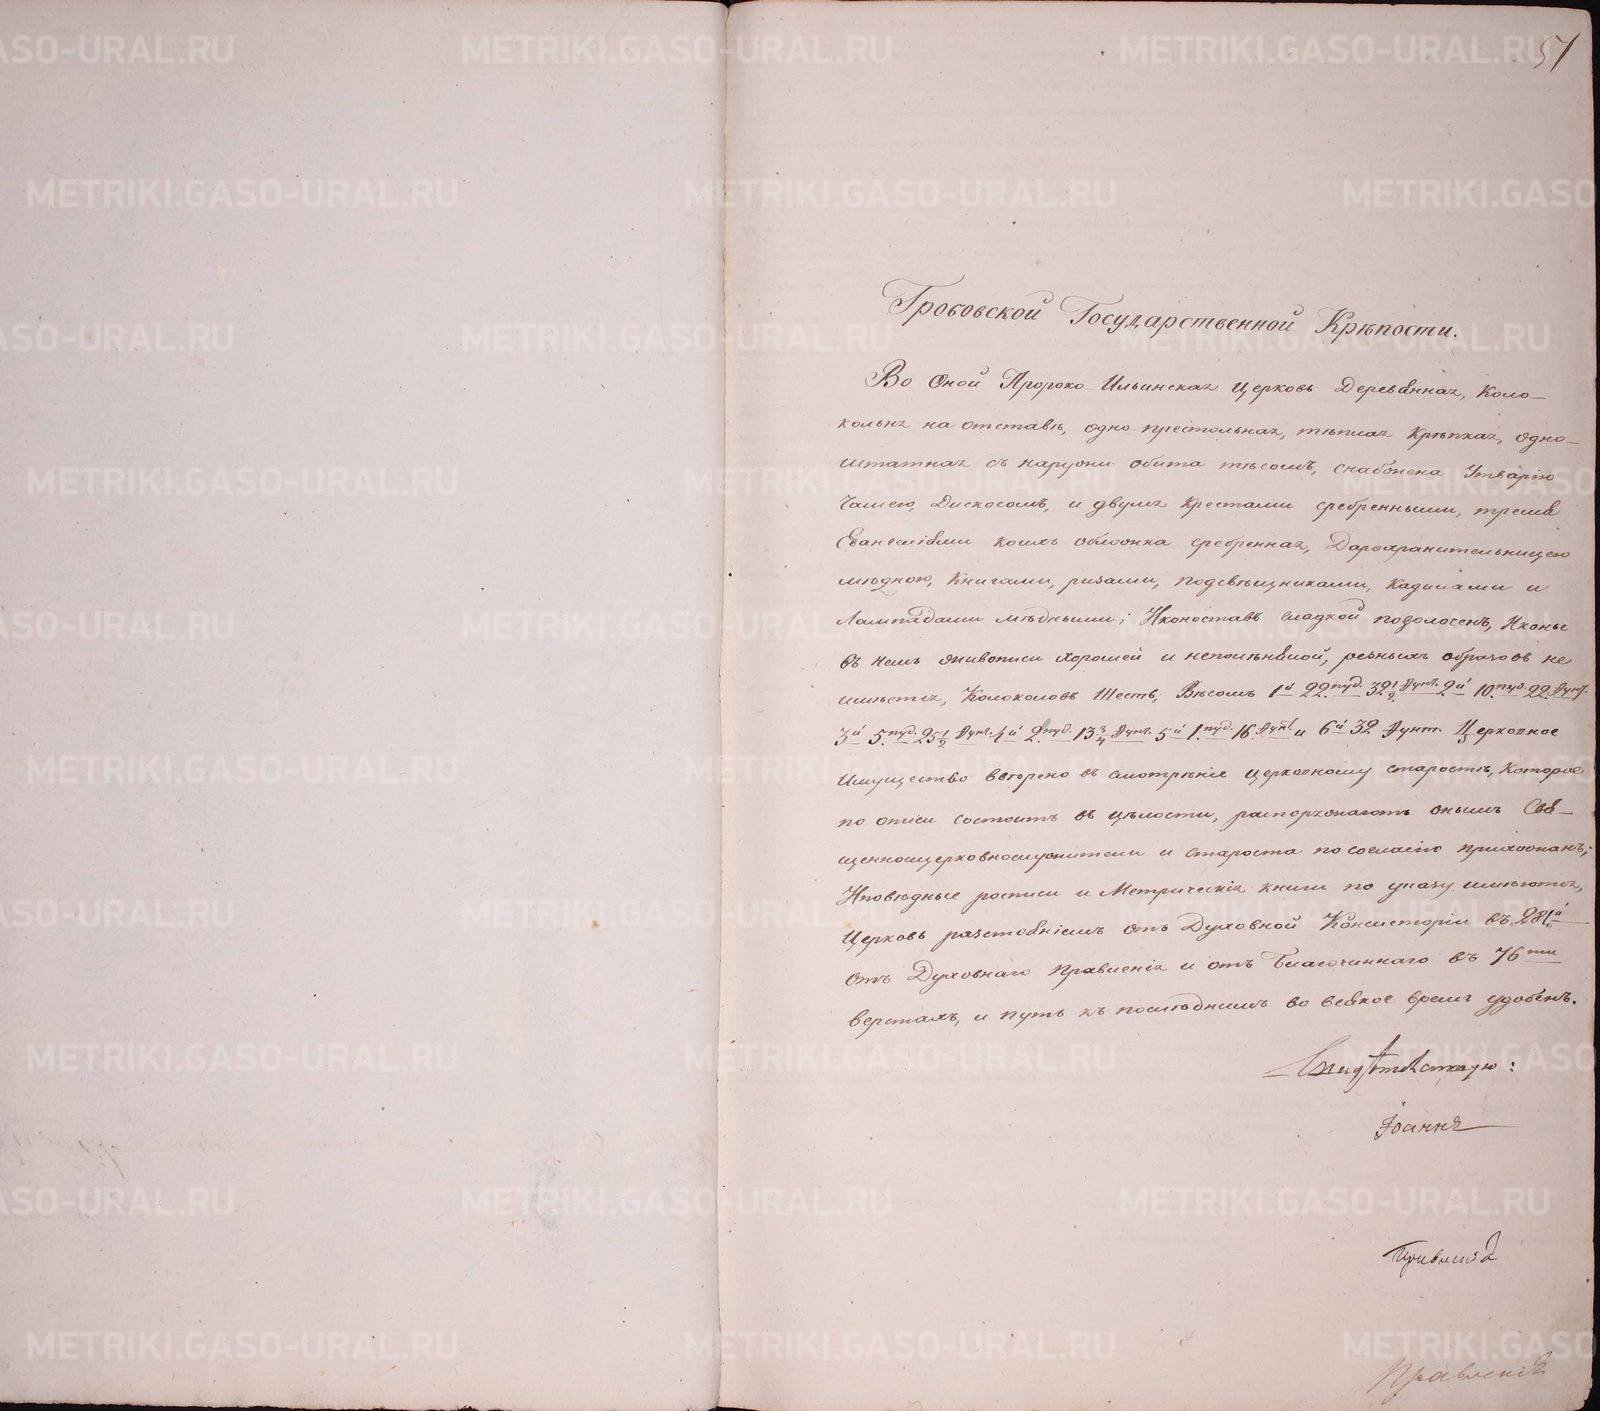 51
Гробовской Государственной Крѣпости.
Во оной Пророко-Ильинская церковь Деревянная, Коло-
кольня на отставѣ, одно престольная, теплая крѣпкая, одно-
штатная съ наружи обита тесомъ, снабжена Утварію
Чашею, Дискосомъ, и двумя Крестами сребренными, тремя
Евангеліями коихъ обложка сребренная, Дарохранительницею
мѣдною, Книгами, ризами, подсвѣщниками, Кадилами и
Лампадами мѣдными; Иконостасъ гладкой позолоченъ, Иконы
въ немъ живописи хорошей и неполинялой, резныхъ образовъ не
имѣетъ, Колоколовъ Шесть, Вѣсомъ 1й 22 пуд. 32 1/2 фунт. 2й 10 пуд. 22 фунт.
3й 5 пуд. 25 1/2 фунт. 4й 2 пуд. 13 3/4 фунт. 5й 1 пуд. 16 фунт. и 6й 32 фунт. Церковное
Имущество ввѣрено въ смотрѣніе церковному старостѣ, которое
по описи состоитъ въ цѣлости, распоряжаютъ онымъ Свя-
щенноцерковнослужители и староста по согласію прихожанъ;
Исповѣдные росписи и Метрическія книги по указу имѣются,
Церковь разстояніемъ отъ Духовной Консисторіи въ 281й
отъ Духовнаго Правленія и отъ Благочиннаго въ 76ти
верстахъ, и путь къ послѣднимъ во всякое время удобенъ.
Свидѣтельствую:
Іоаннъ
Правленія